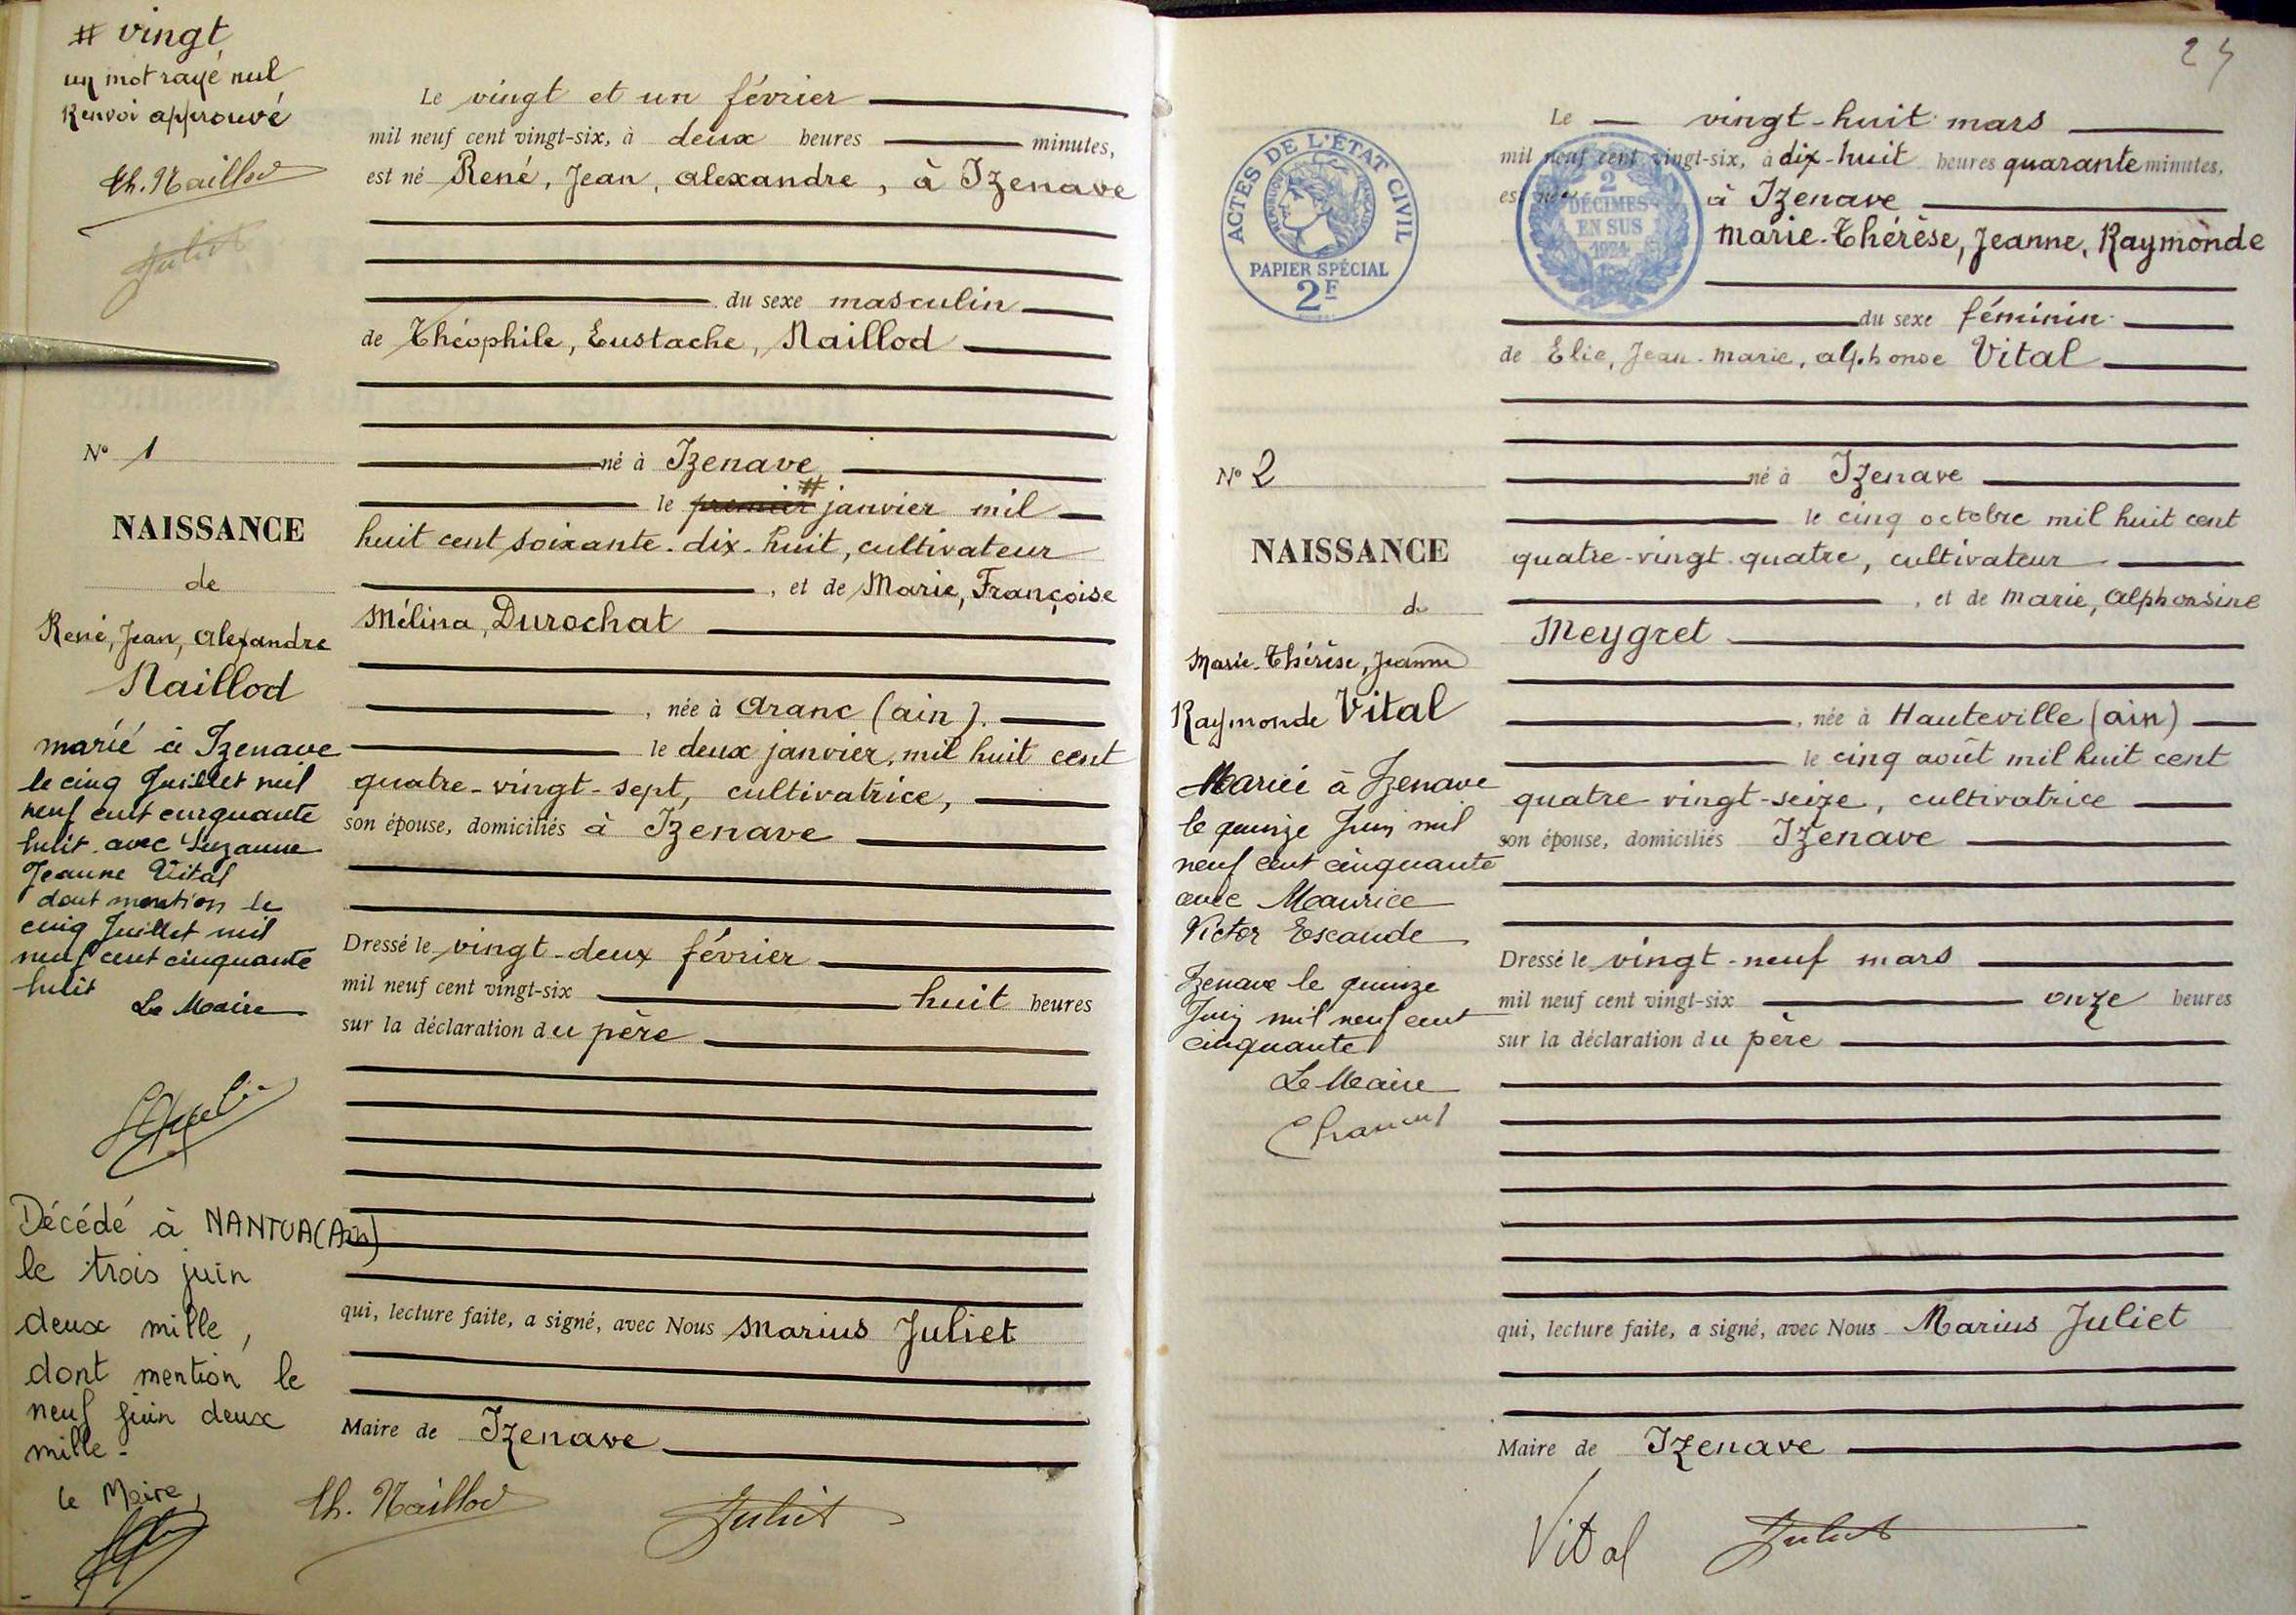 # vingt
un mot rayé nul
Renvoi approuvé
th. Naillod
Juliet
Le vingt et un février
mil neuf cent vingt-six, à deux heures minutes,
est né René, Jean, Alexandre, à Izenave
du sexe masculin
de Théophile, Eustache, Naillod
né à Izenave
le premier # janvier mil
huit cent soixante-dix-huit, cultivateur
, et de Marie, Françoise
Mélina, Durochat
, née à Aranc (Ain).
le deux janvier, mil huit cent
quatre-vingt-sept, cultivatrice,
son épouse, domiciliés à Izenave
Dressé le vingt-deux février
mil neuf cent vingt-six huit heures
sur la déclaration du père
qui, lecture faite, a signé, avec Nous Marius Juliet
Maire de Izenave
th. Naillod Juliet
N° 1
NAISSANCE
de
René, Jean, Alexandre
Naillod
marié à Izenave
le cinq Juillet mil
neuf cent cinquante
huit avec Suzanne
Jeanne Vital
dont mention le
cinq Juillet mil
neuf cent cinquante
huit
Le Maire
Décédé à NANTUA (Ain)
le trois juin
deux mille,
dont mention le
neuf juin deux
mille -
Le Maire,
24
ACTES DE L'ÉTAT CIVIL
RÉPUBLIQUE FRANÇAISE
PAPIER SPÉCIAL
2F
2
DÉCIMES
EN SUS
1924
Le vingt-huit mars
mil neuf cent vingt-six, à dix-huit heures quarante minutes,
est née à Izenave
Marie-Thérèse, Jeanne, Raymonde
du sexe féminin
de Elie, Jean-Marie, Alphonse Vital
né à Izenave
le cinq octobre mil huit cent
quatre-vingt-quatre, cultivateur
, et de Marie, Alphonsine
Meygret
, née à Hauteville (Ain)
le cinq août mil huit cent
quatre-vingt-seize, cultivatrice
son épouse, domiciliés Izenave
Dressé le vingt-neuf mars
mil neuf cent vingt-six onze heures
sur la déclaration du père
qui, lecture faite, a signé, avec Nous Marius Juliet
Maire de Izenave
Vital Juliet
N° 2
NAISSANCE
de
Marie-Thérèse, Jeanne
Raymonde Vital
Mariée à Izenave
le quinze Juin mil
neuf cent cinquante
avec Maurice
Victor Escande
Izenave le quinze
Juin mil neuf cent
cinquante
Le Maire